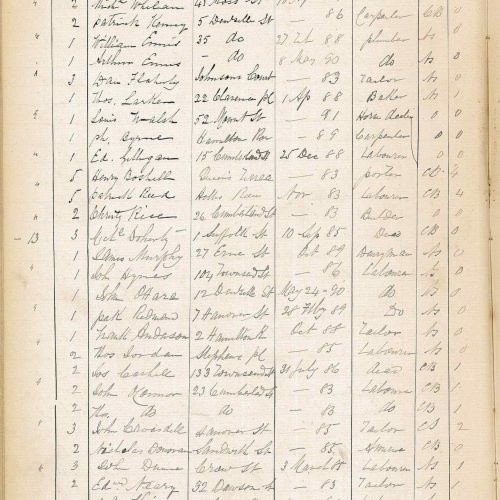 2 Michl Whelan
2 Patrick Henry 5 Denzille St — 86 Carpenter CB 0
1 William Ennis 35 do 27 Feb 88 plumber As 0
1 Arthur Ennis — do 8 May 90 do As 0
3 Dan Flaherty Johnsons Court — 83 Tailor As 0
1 Thos. Larken 22 Clarence pl 1 Ap 88 Baker As 1
1 Louis Walsh 52 Mount St — 91 Horse dealer 0 0
1 ph. Byrne Hamilton Row — 89 Carpenter 0 0
1 Ed. Gilligan 15 Cumberland St 25 Dec 88 Labourer 0 0
5 Henry Boshell — 83 porter CB 4
5 patrick Reed Holles Row Nov 83 Labourer CB 4
2 Christy Rice 26 Cumberland St — 83 Builder 0 0
13 3 Michl Doherty 1 Suffolk St 10 Sep 85 Dead CB 0
1 James Murphy 27 Erne St Oct 89 Dairyman As 0
1 Joh Hynes 104 Townsend St — 86 Labourer 0
1 John O'Hara 12 Denzille St May 24-90 do As 0
1 pak Redman 7 Hanover St 28 Feby 89 Do As 0
1 Frank Anderson 2 Hamilton R Oct 88 Tailor As 0
2 Thos Jordan Stephens pl — 85 Labourer As 0
2 Jos Cashell 133 Townsend St 31 July 86 dead CB 1
2 John 23 Cumberland St — 83 Labourer CB 1
2 Tho. do do — 83 do CB 1
3 John Croasdell Hanover St — 85 Tailor CS 2
2 Nicholas Donovan Sandwith St — 85 CB 0
3 Joh Dunne Crow St 3 March 85 Labourer As 1
2 Edw Neary 32 Dawson St — 83 Tailor As 1